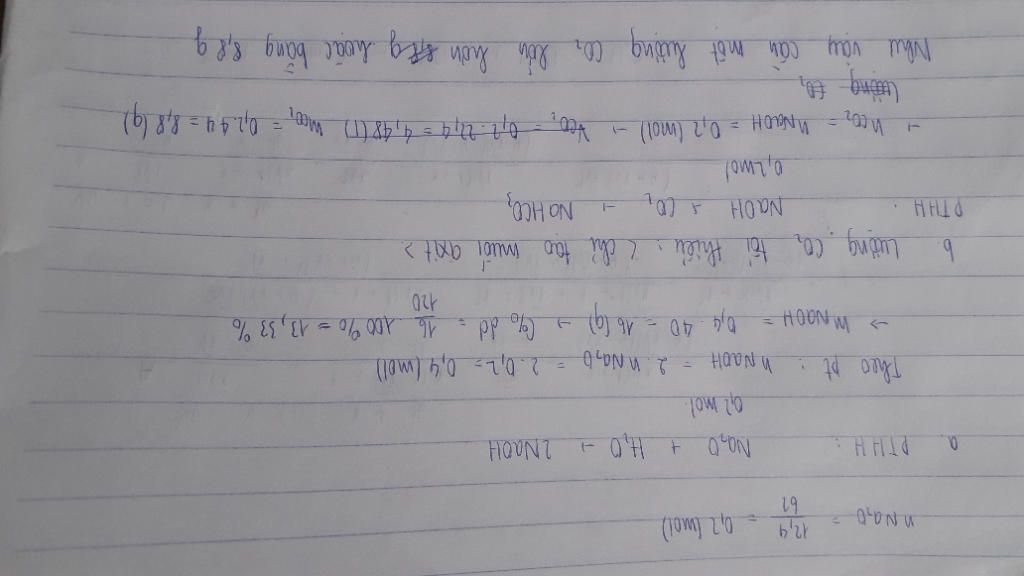 nNa₂O = 12,4/62 = 0,2 (mol)
a. PTHH: Na₂O + H₂O → 2NaOH
0,2mol
Theo pt: nNaOH = 2.nNa₂O = 2.0,2 = 0,4 (mol)
→ mNaOH = 0,4.40 = 16 (g) → C% dd = 16/120 .100% = 13,33%
b. Lượng CO₂ tối thiểu: < chỉ tạo muối axit >
PTHH: NaOH + CO₂ → NaHCO₃
0,2mol
→ nCO₂ = nNaOH = 0,2 (mol) → VCO₂ = 0,2.22,4 = 4,48 (l) mCO₂ = 0,2.44 = 8,8 (g)
Lượng CO₂
Như vậy cần một lượng CO₂ lớn hơn 8,8 g hoặc bằng 8,8 g